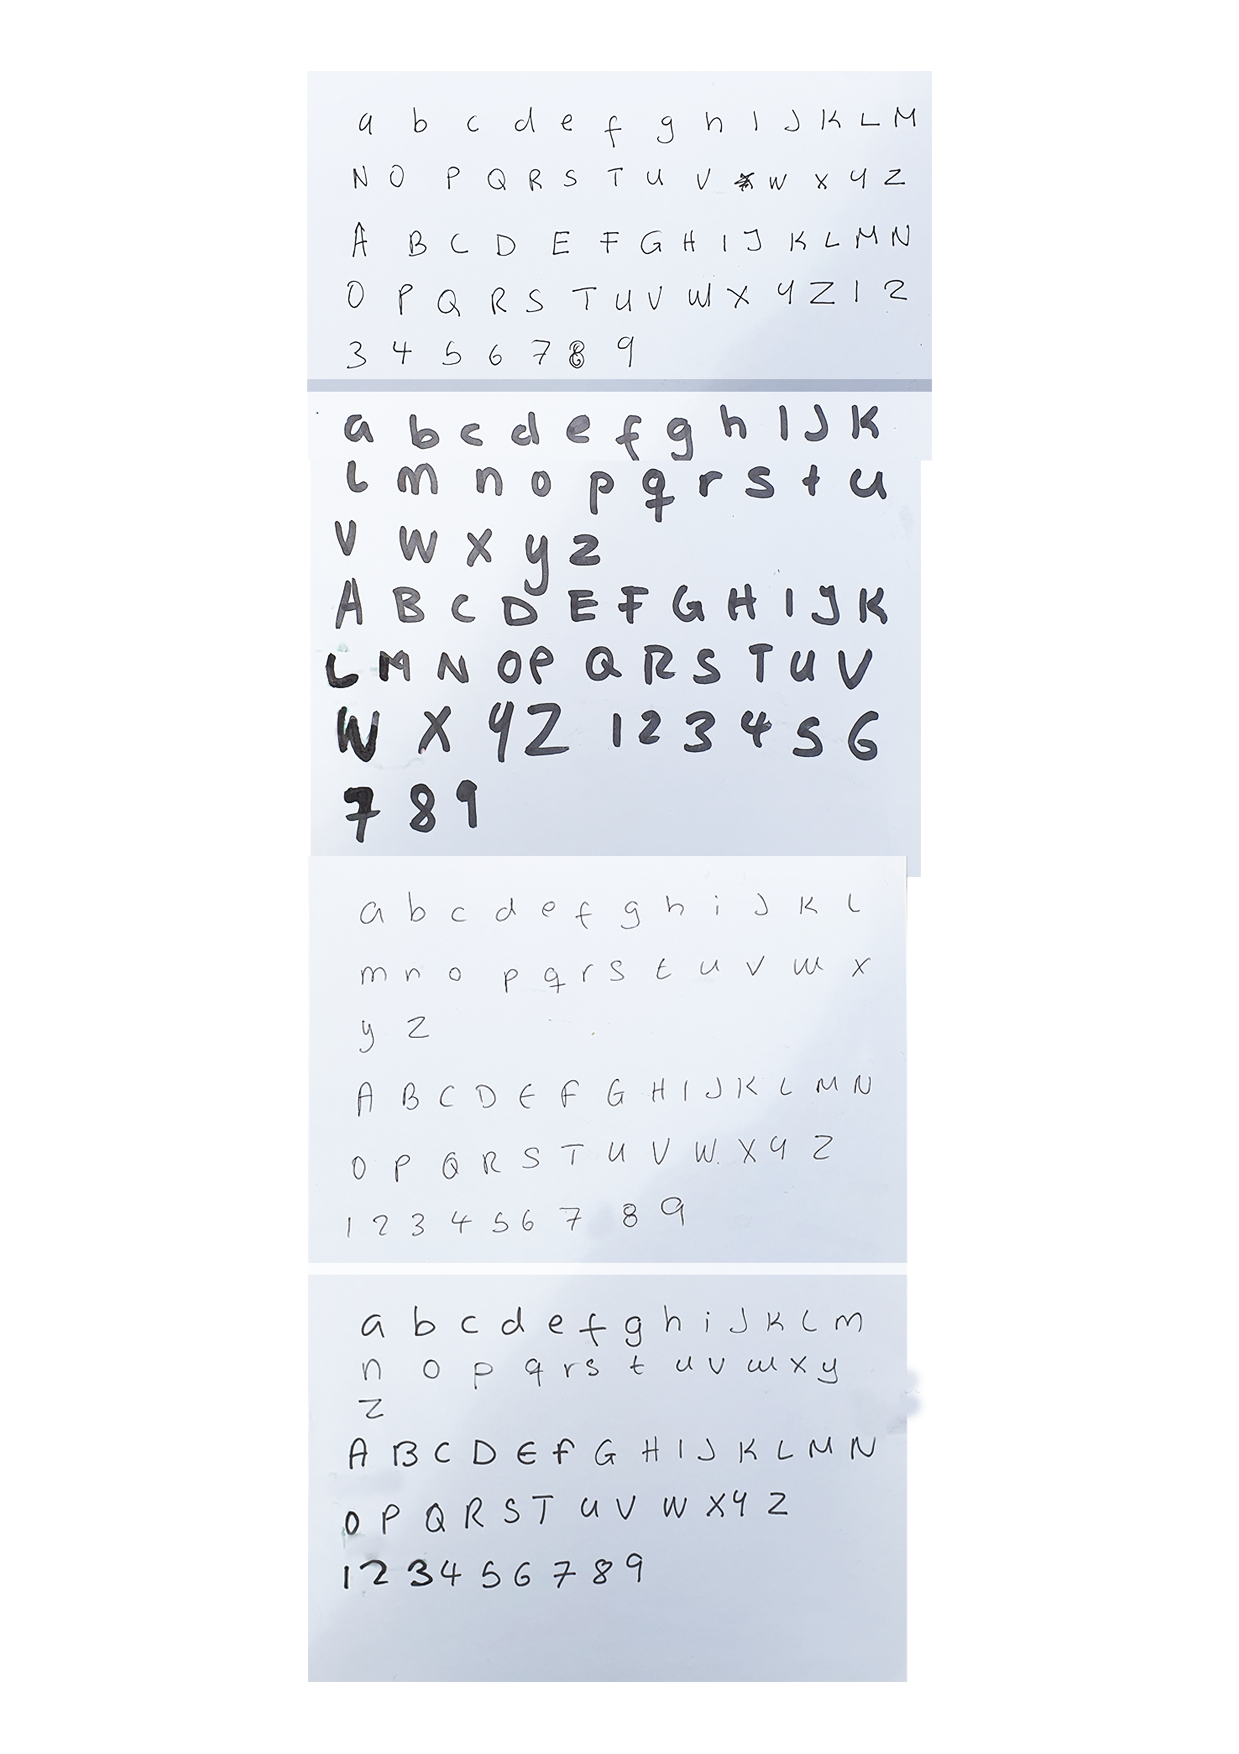 a b c d e f g h I J K L M
N O P Q R S T U V W X Y Z
A B C D E F G H I J K L M N
O P Q R S T U V W X Y Z 1 2
3 4 5 6 7 8 9
a b c d e f g h I J K
L m n o p q r s t u
V W X y z
A B C D E F G H I J K
L M N O P Q R S T U V
W X Y Z 1 2 3 4 5 6
7 8 9
a b c d e f g h i J K L
m n o p q r s t u v w x
y z
A B C D E F G H I J K L M N
O P Q R S T U V W X Y Z
1 2 3 4 5 6 7 8 9
a b c d e f g h i J K L m
n o p q r s t u v w x y
z
A B C D E F G H I J K L M N
O P Q R S T U V W X Y Z
1 2 3 4 5 6 7 8 9